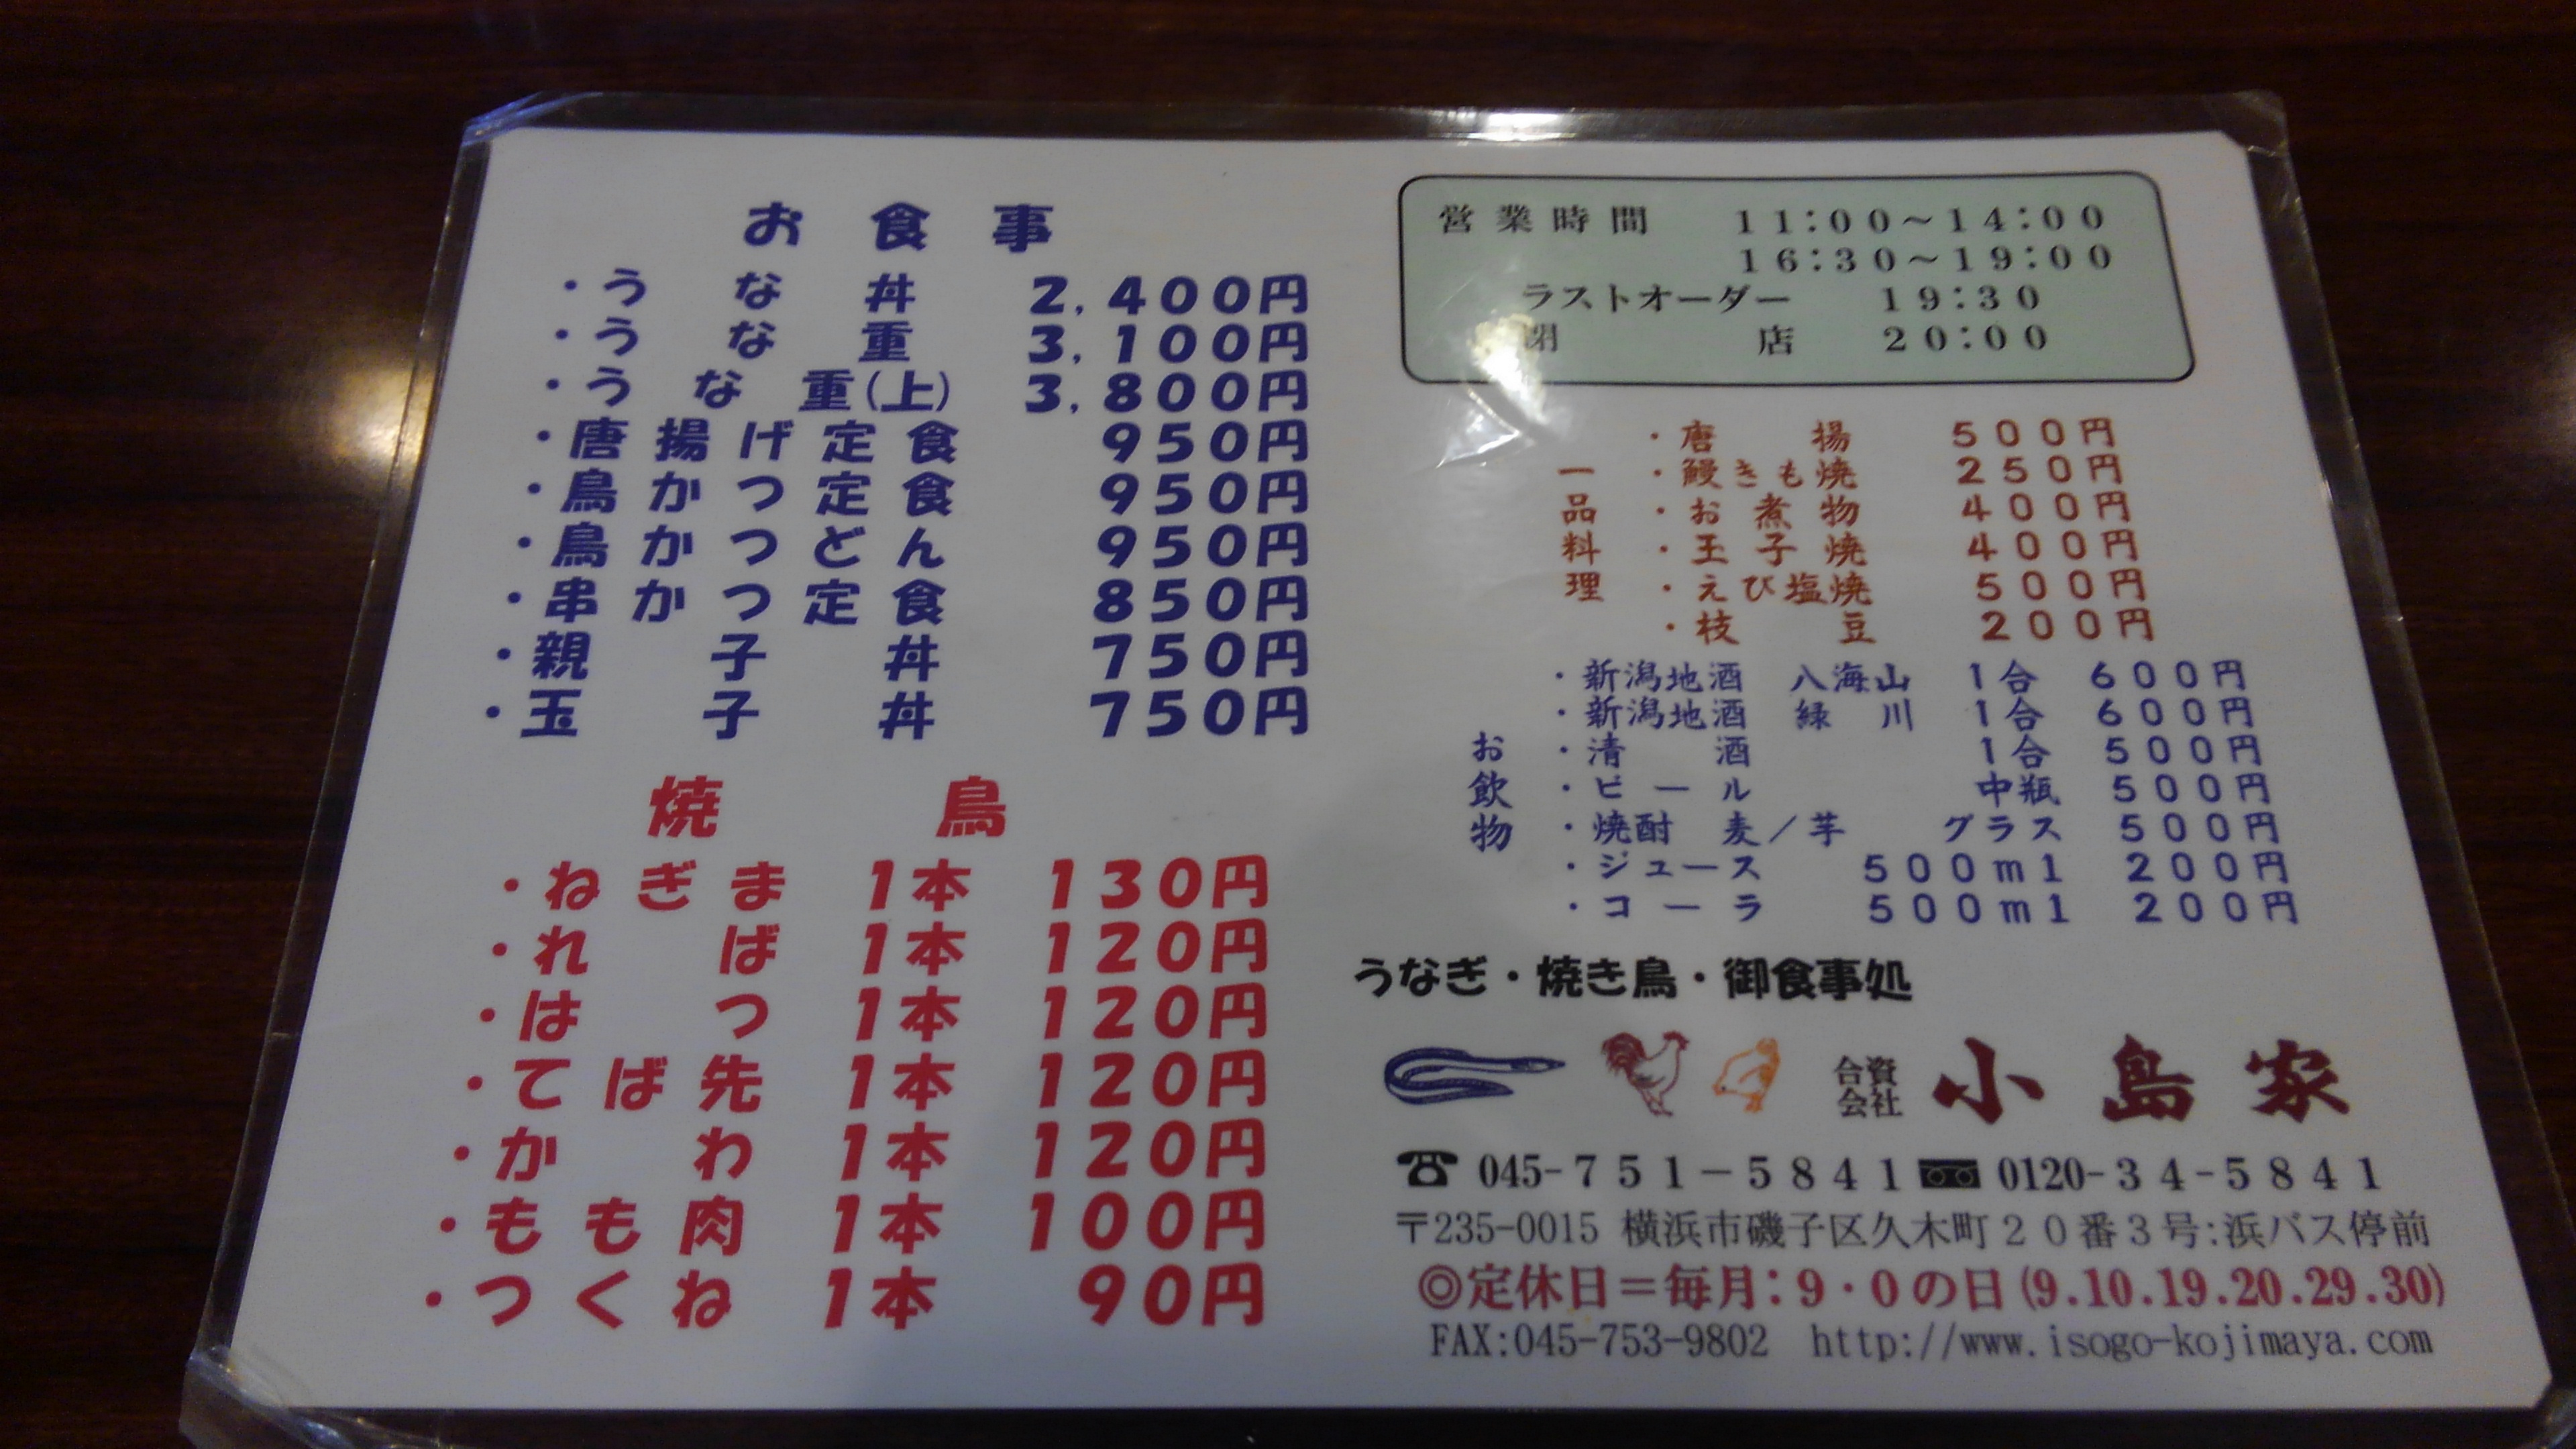 お食事
・うな丼 2,400円
・うな重 3,100円
・うな重(上) 3,800円
・唐揚げ定食 950円
・鳥かつ定食 950円
・鳥かつどん 950円
・串かつ定食 850円
・親子丼 750円
・玉子丼 750円
焼鳥
・ねぎま 1本 130円
・れば 1本 120円
・はつ 1本 120円
・てば先 1本 120円
・かわ 1本 120円
・もも肉 1本 100円
・つくね 1本 90円
営業時間 11:00~14:00
16:30~19:00
ラストオーダー 19:30
閉店 20:00
一品料理
・唐揚 500円
・鰻きも焼 250円
・お煮物 400円
・玉子焼 400円
・えび塩焼 500円
・枝豆 200円
お飲物
・新潟地酒 八海山 1合 600円
・新潟地酒 緑川 1合 600円
・清酒 1合 500円
・ビール 中瓶 500円
・焼酎 麦/芋 グラス 500円
・ジュース 500ml 200円
・コーラ 500ml 200円
うなぎ・焼き鳥・御食事処
合資会社 小島家
☎ 045-751-5841 0120-34-5841
〒235-0015 横浜市磯子区久木町20番3号:浜バス停前
◎定休日=毎月:9・0の日(9.10.19.20.29.30)
FAX:045-753-9802 http://www.isogo-kojimaya.com